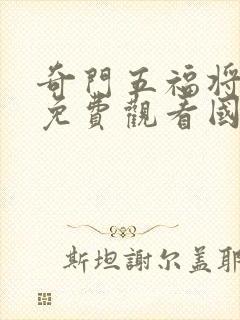 奇門五福将
免費觀看國
斯坦謝尔盖耶